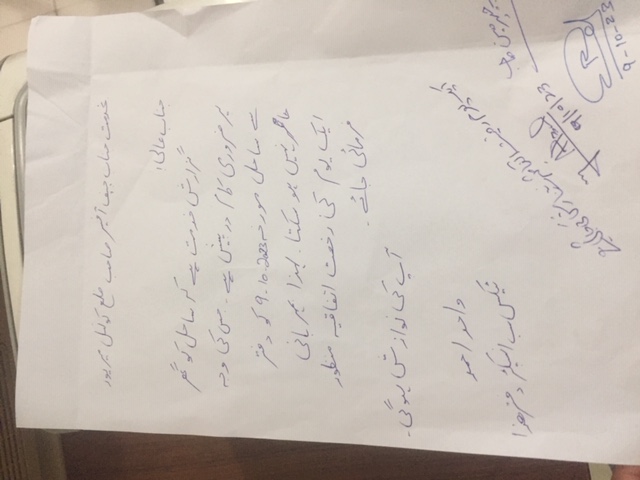 بخدمت جناب چیف آفیسر صاحب ضلع کونسل میرپور
جناب عالی!
گزارش خدمت ہے کہ سائل کو گھر
پر ضروری کام درپیش ہے۔ جس کی وجہ
سے سائل مورخہ 9-10-2023 کو دفتر
حاضر نہیں ہو سکتا۔ لہذا بمہربانی
ایک یوم کی رخصت اتفاقیہ منظور
فرمائی جائے۔
آپ کی نوازش ہوگی۔
واحد احمد
ٹیکس سب انسپکٹر دفتر ھذا
ایک یوم رخصت اتفاقیہ سفارش کی جاتی ہے
09/10/23
چیئرمین صاحب
9-10-23